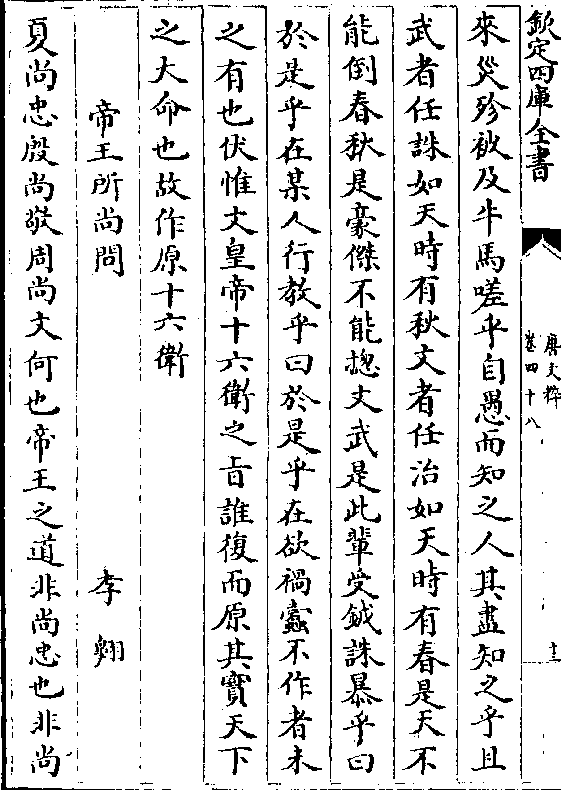 欽定四庫全書
唐文粹
卷四十八
十三
來災沴被及牛馬嗟乎自愚而知之人其盡知之乎且
武者任誅如天時有秋文者任治如天時有春是天不
能倒春秋是豪傑不能揔文武是此輩受鉞誅暴乎曰
於是乎在某人行教乎曰於是乎在欲禍蠹不作者未
之有也伏惟文皇帝十六衛之旨誰復而原其實天下
之大命也故作原十六衛
帝王所尚問 李翺
夏尚忠殷尚敬周尚文何也帝王之道非尚忠也非尚